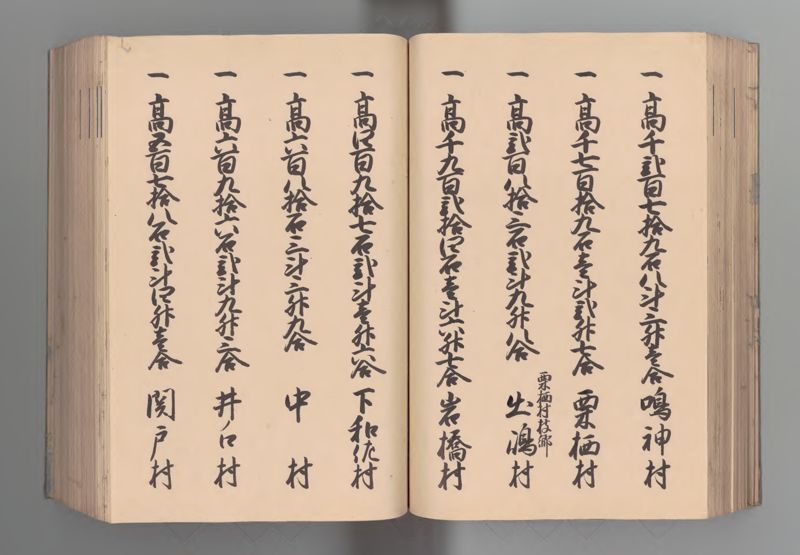 一 高千弐百七拾九石八斗三升壱合 鳴神村
一 高千七百拾九石壱斗弐升七合 栗栖村
栗栖村枝郷
一 高弐百八拾三石弐斗九升八合 出嶋村
一 高千九百弐拾四石壱斗六升七合 岩橋村
一 高四百九拾七石弐斗壱升六合 下和佐村
一 高六百八拾石三斗三升九合 中村
一 高六百九拾六石弐斗九升三合 井ノ口村
一 高五百七拾八石弐斗四升壱合 関戸村